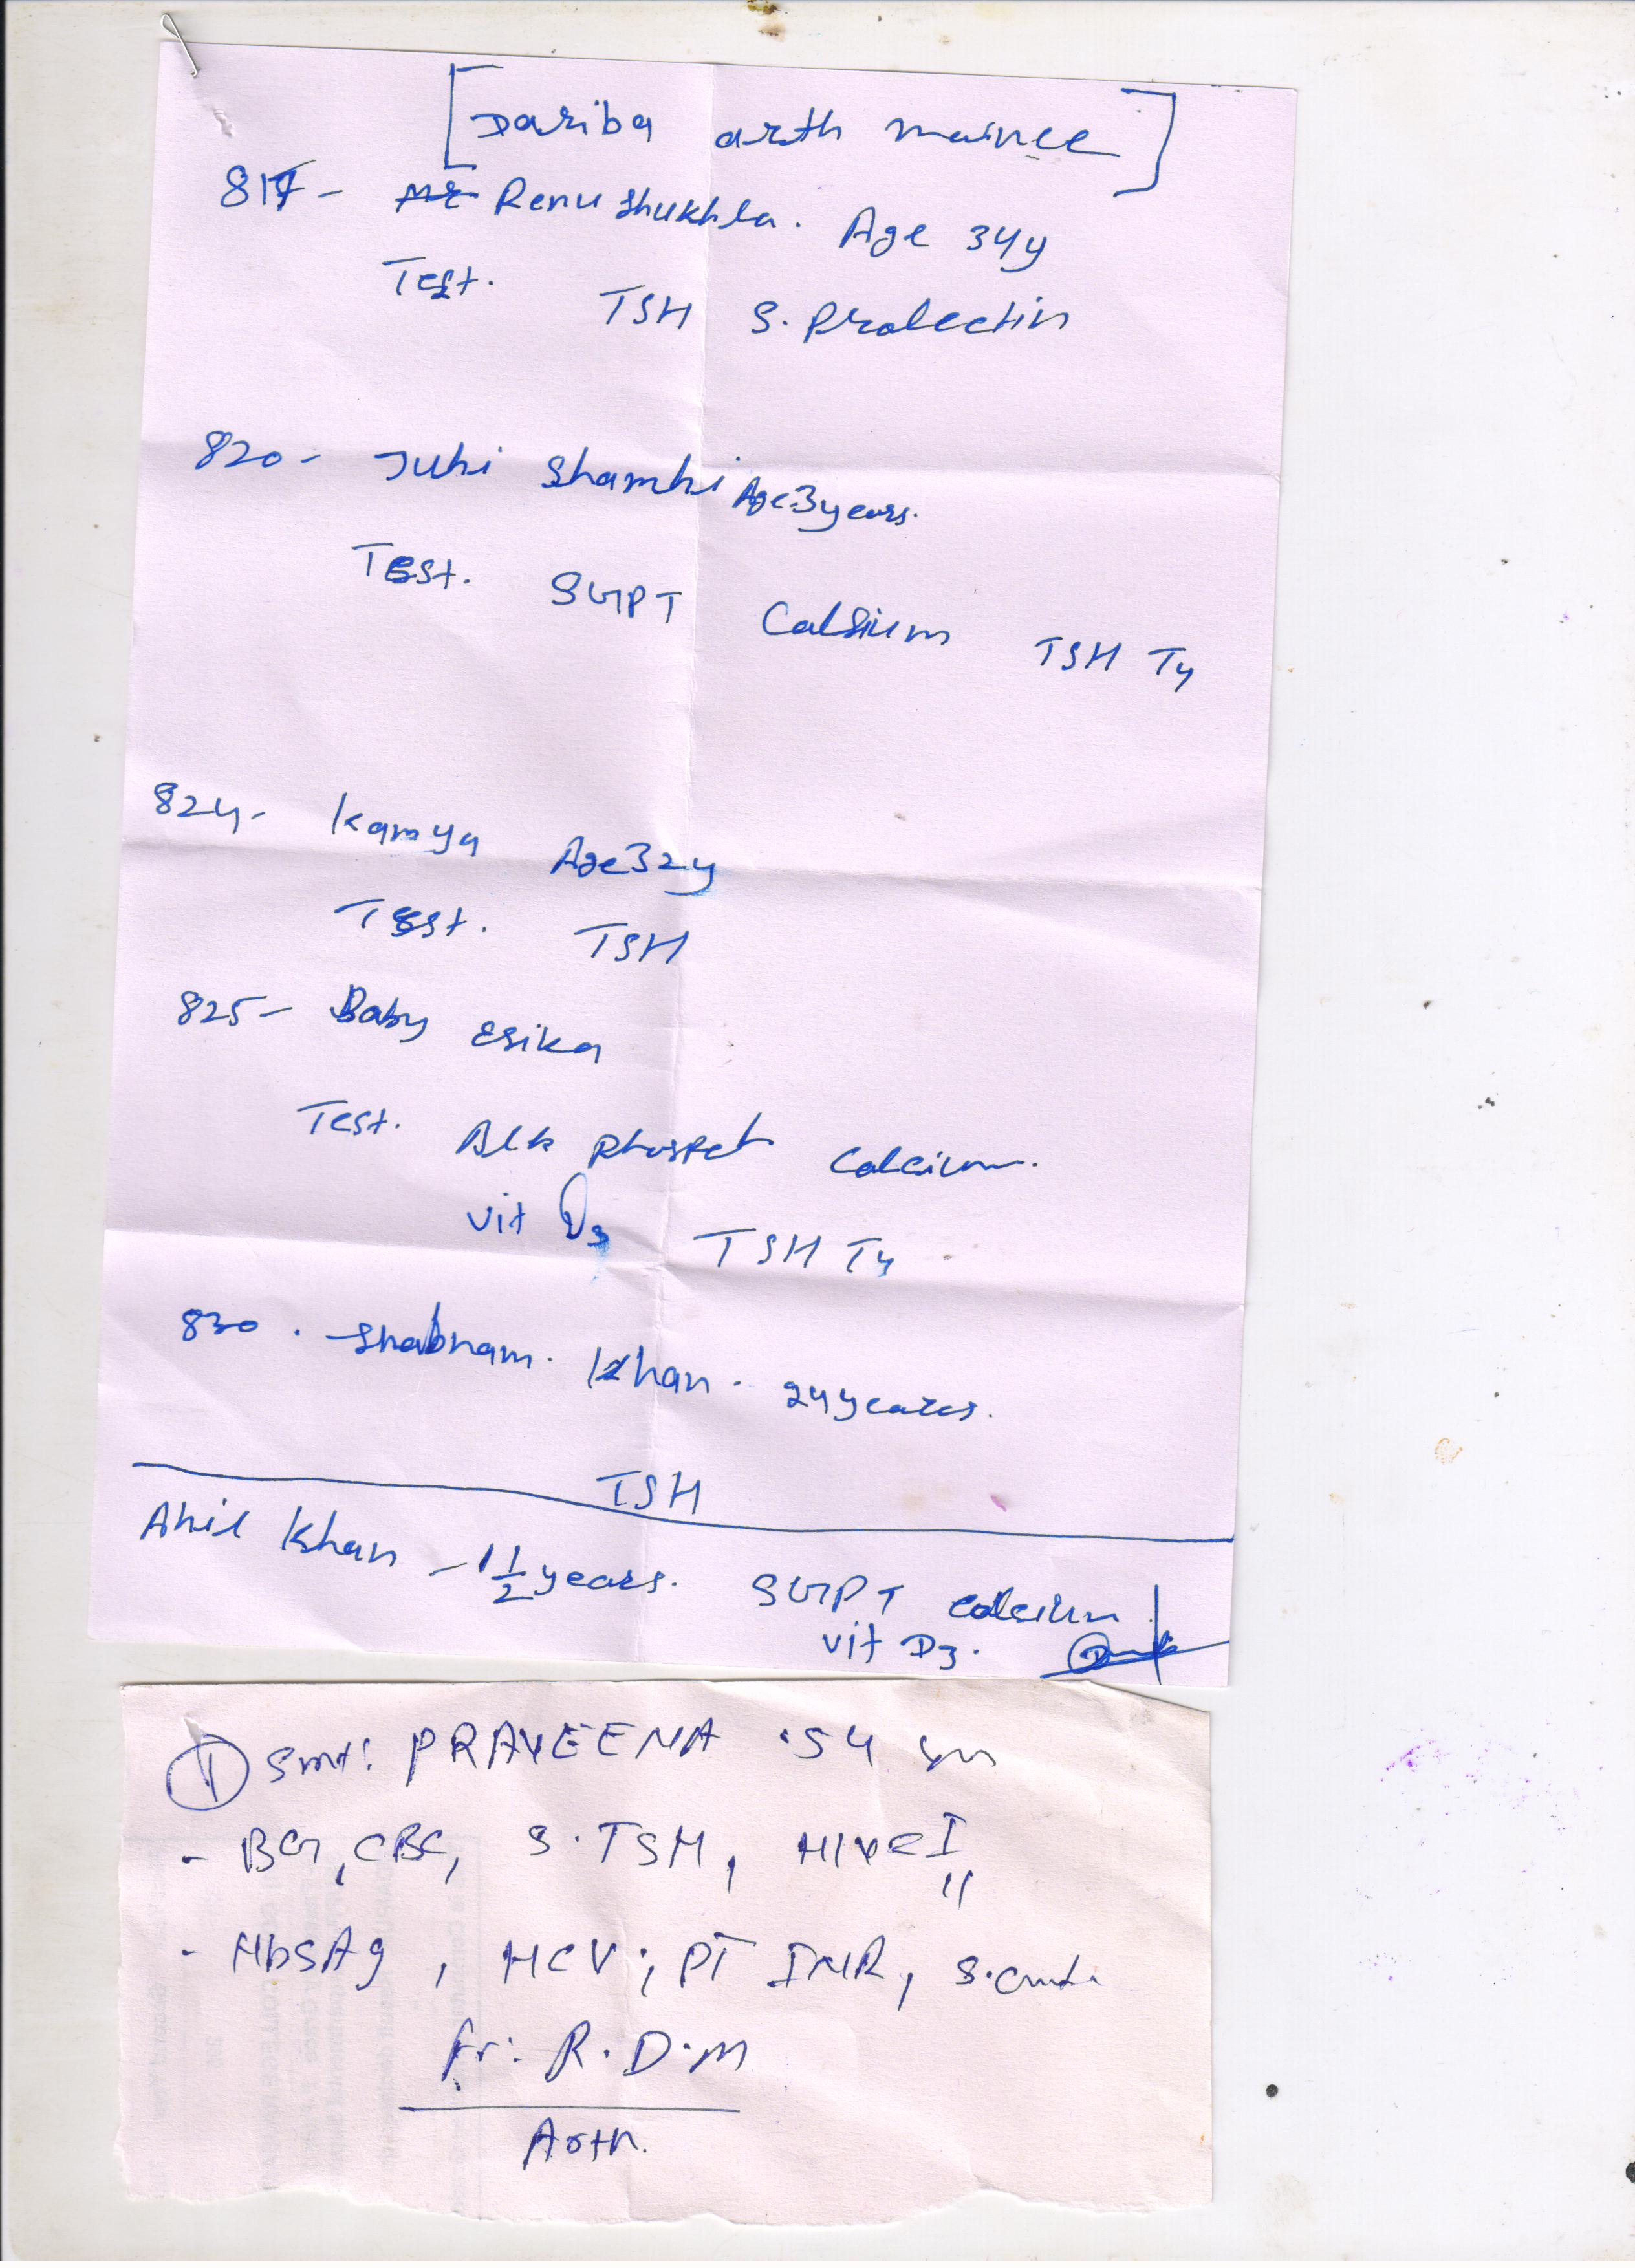 [Dariba arth mainee]
817- Renu Shukhla. Age 34y
Test. TSH S. Prolectin
820- Juhi Shamhi Age 3 years.
Test. SGPT Calsium TSH T4
824- Kamya Age 32y
Test. TSH
825- Baby Esika
Test. Alk Phospet Calcium.
Vit D3 TSH T4
830. Shabnam. Khan. 24 years.
TSH
Ahil Khan - 1 1/2 years. SGPT Calcium
Vit D3.
1 Smt: PRAVEENA 54 yrs
- BG, CBC, S. TSH, HIV I
II
- HbSAg, HCV; PT INR,
fr: R.D.M
Arth.